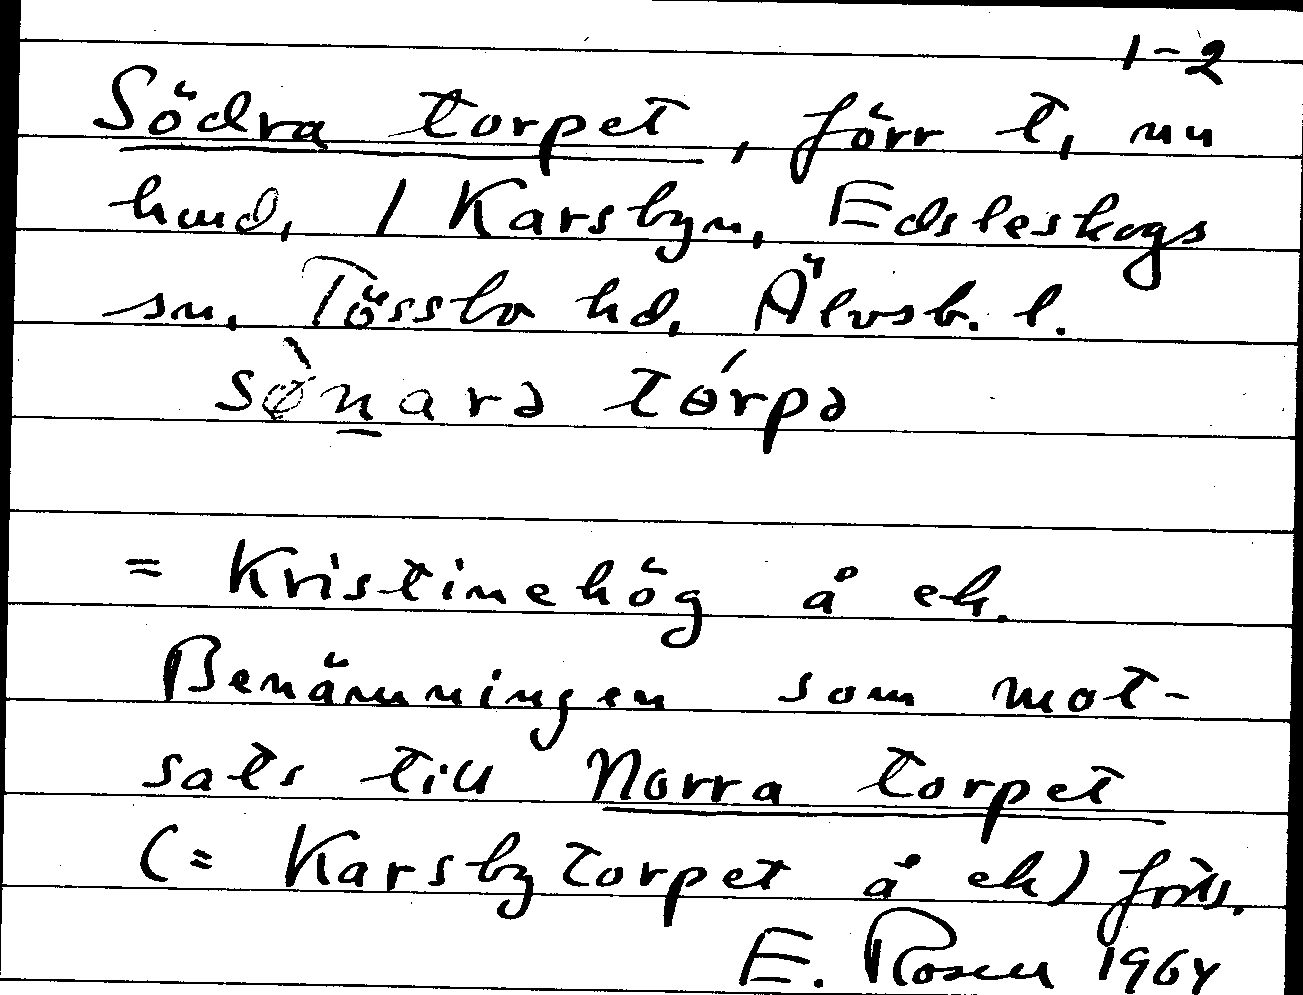 1-2
Södra torpet, förr t, nu
hmd, / Karsbyn, Edsleskogs
sn, Tössbo hd, Älvsb. l.
sø̀narə tórpə
= Kristinehög å ek.
Benämningen som mot-
sats till Norra torpet
(= Karsbytorpet å ek)
E. Rosen 1964